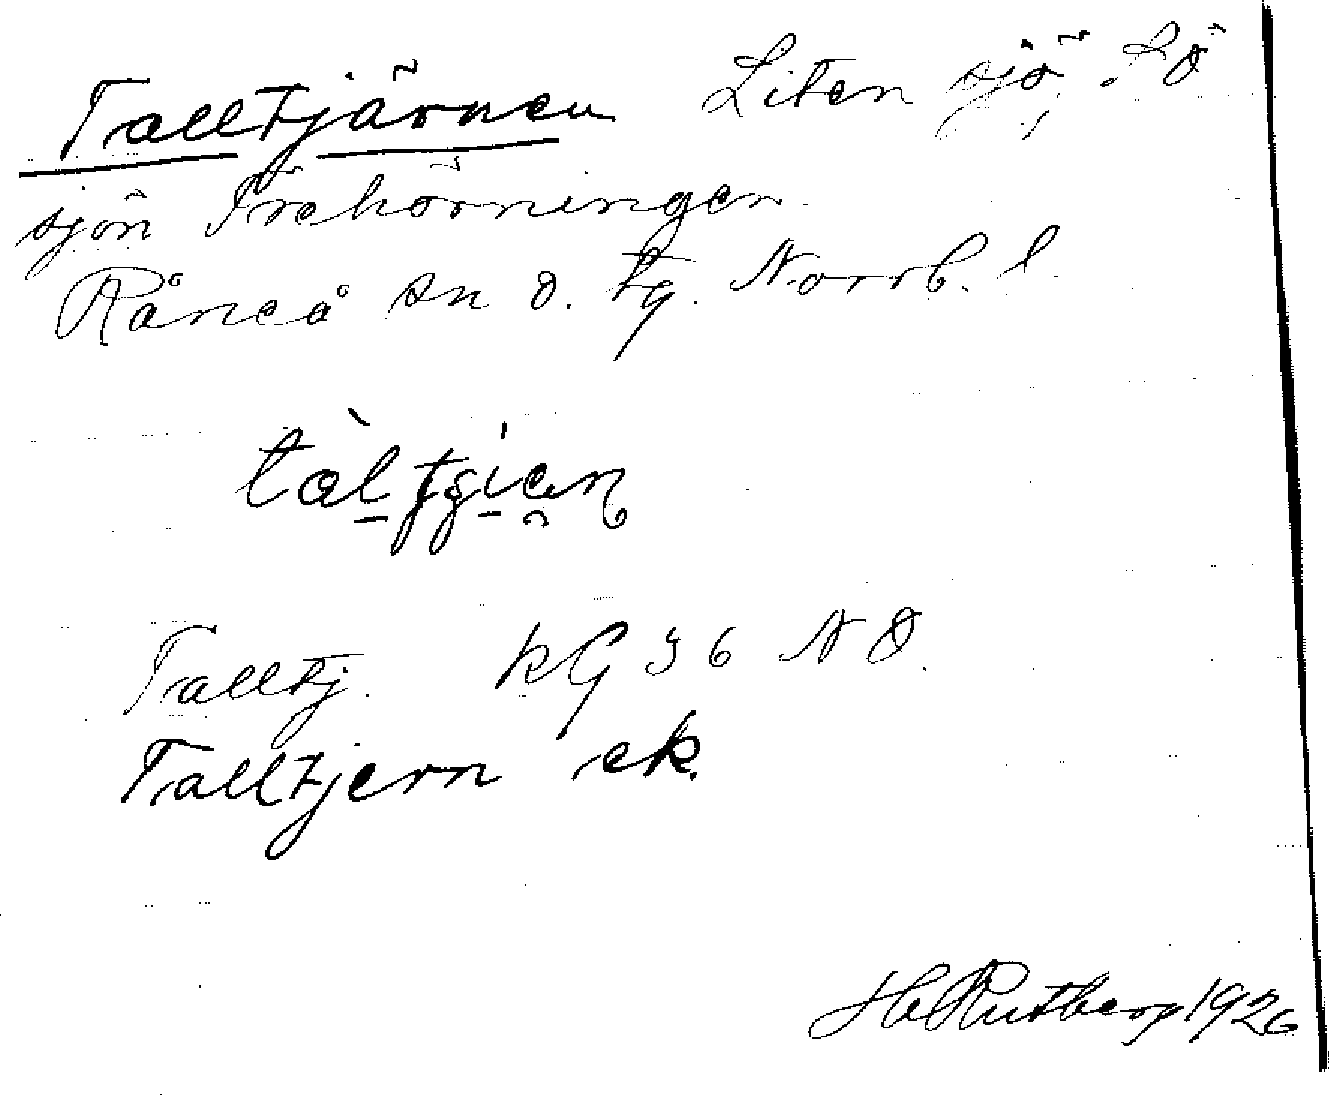 Talltjärnen Liten sjö, SÖ
sjön Trehörningen.
Råneå sn ö. tg. Norrb. l.
Talltj. KG 36 NÖ.
Talltjern ek.
H Rutberg 1926